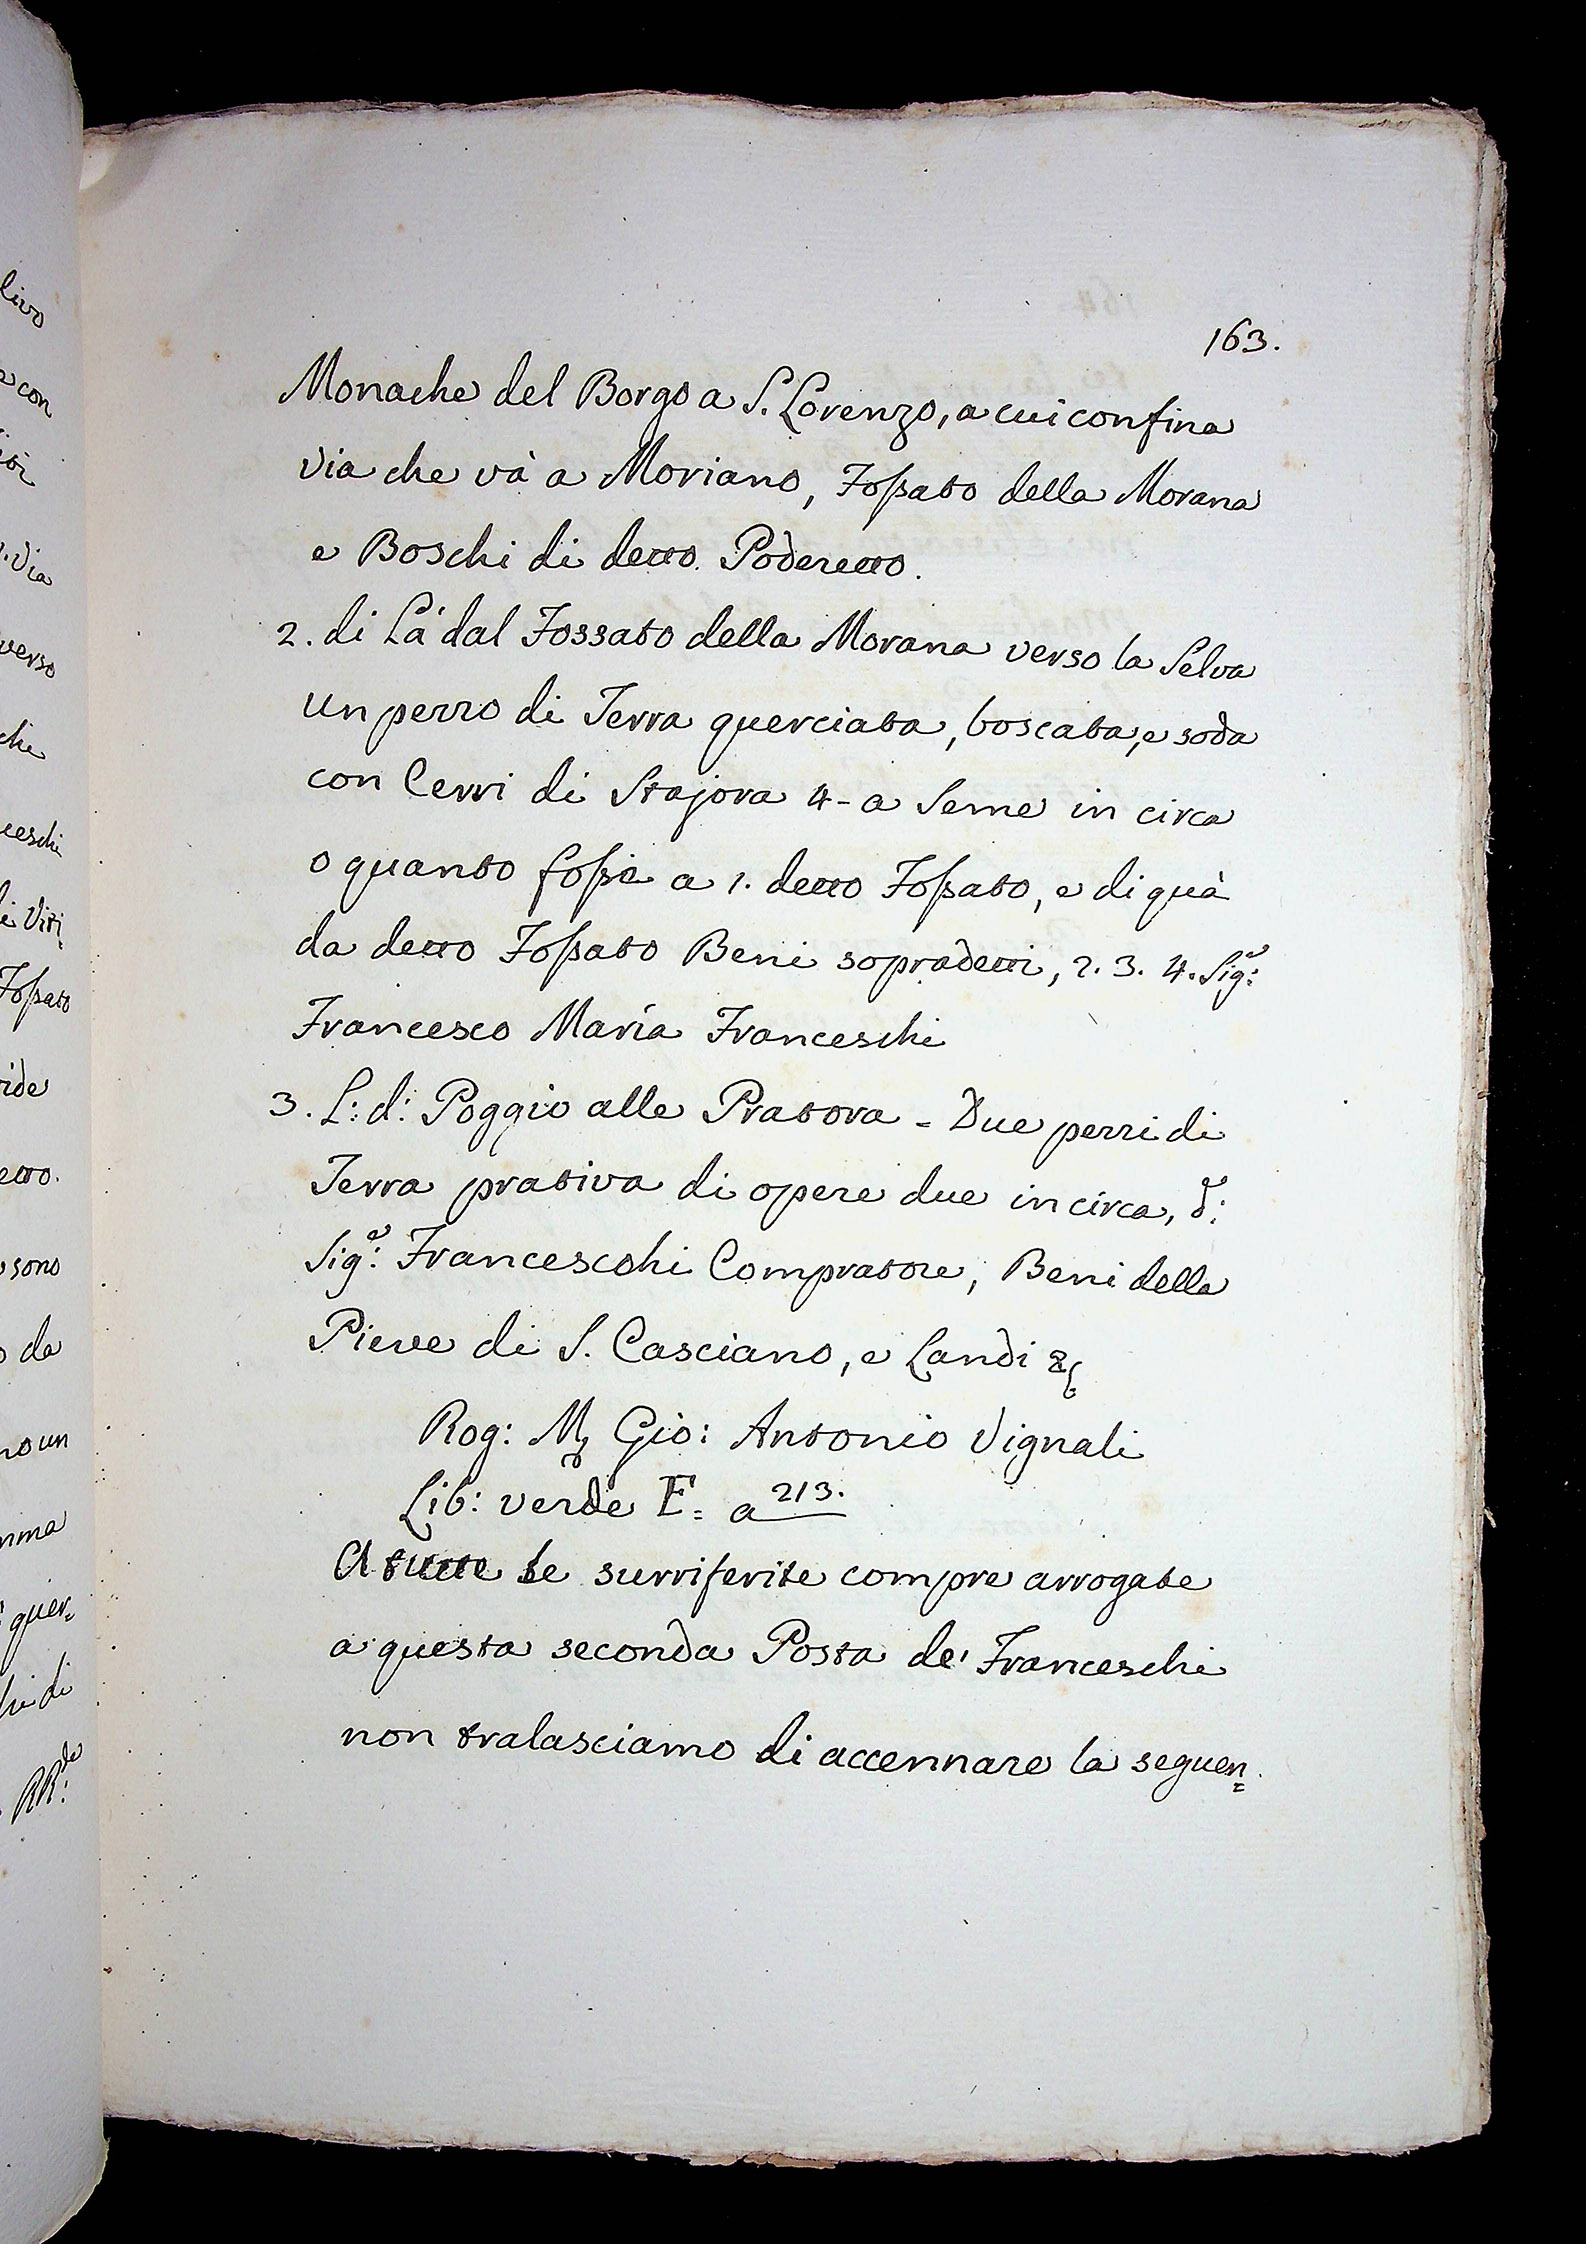 livo
e con
. Via
verso
che
ceschi
di Viti,
Fossato
vide
etto.
sono
o da
no un
mma
quer=
hi di
RR:de
163.
Monache del Borgo a S. Lorenzo, a cui confina
Via che và a Moriano, Fossato della Morana
e Boschi di detto Poderetto.
2. di Là dal Fossato della Morana verso la Selva
un pezzo di Terra querciata, boscata, e soda
con Cerri di Stajora 4 - a Seme in circa
o quanto fosse a 1. detto Fossato, e di quà
da detto Fossato Beni sopradetti, 2. 3. 4. Sig:e
Francesco Maria Franceschi
3. L: d: Poggio alle Pratora - Due pezzi di
Terra prativa di opere due in circa, d:e
Sig:e Franceschi Compratore, Beni della
Pieve di S. Casciano, e Landi &c
Rog: M. Gio: Antonio Vignali
Lib: verde E= a 213.
A tutte le surriferite compre arrogate
a questa seconda Posta de' Franceschi
non tralasciamo di accennare la seguen=